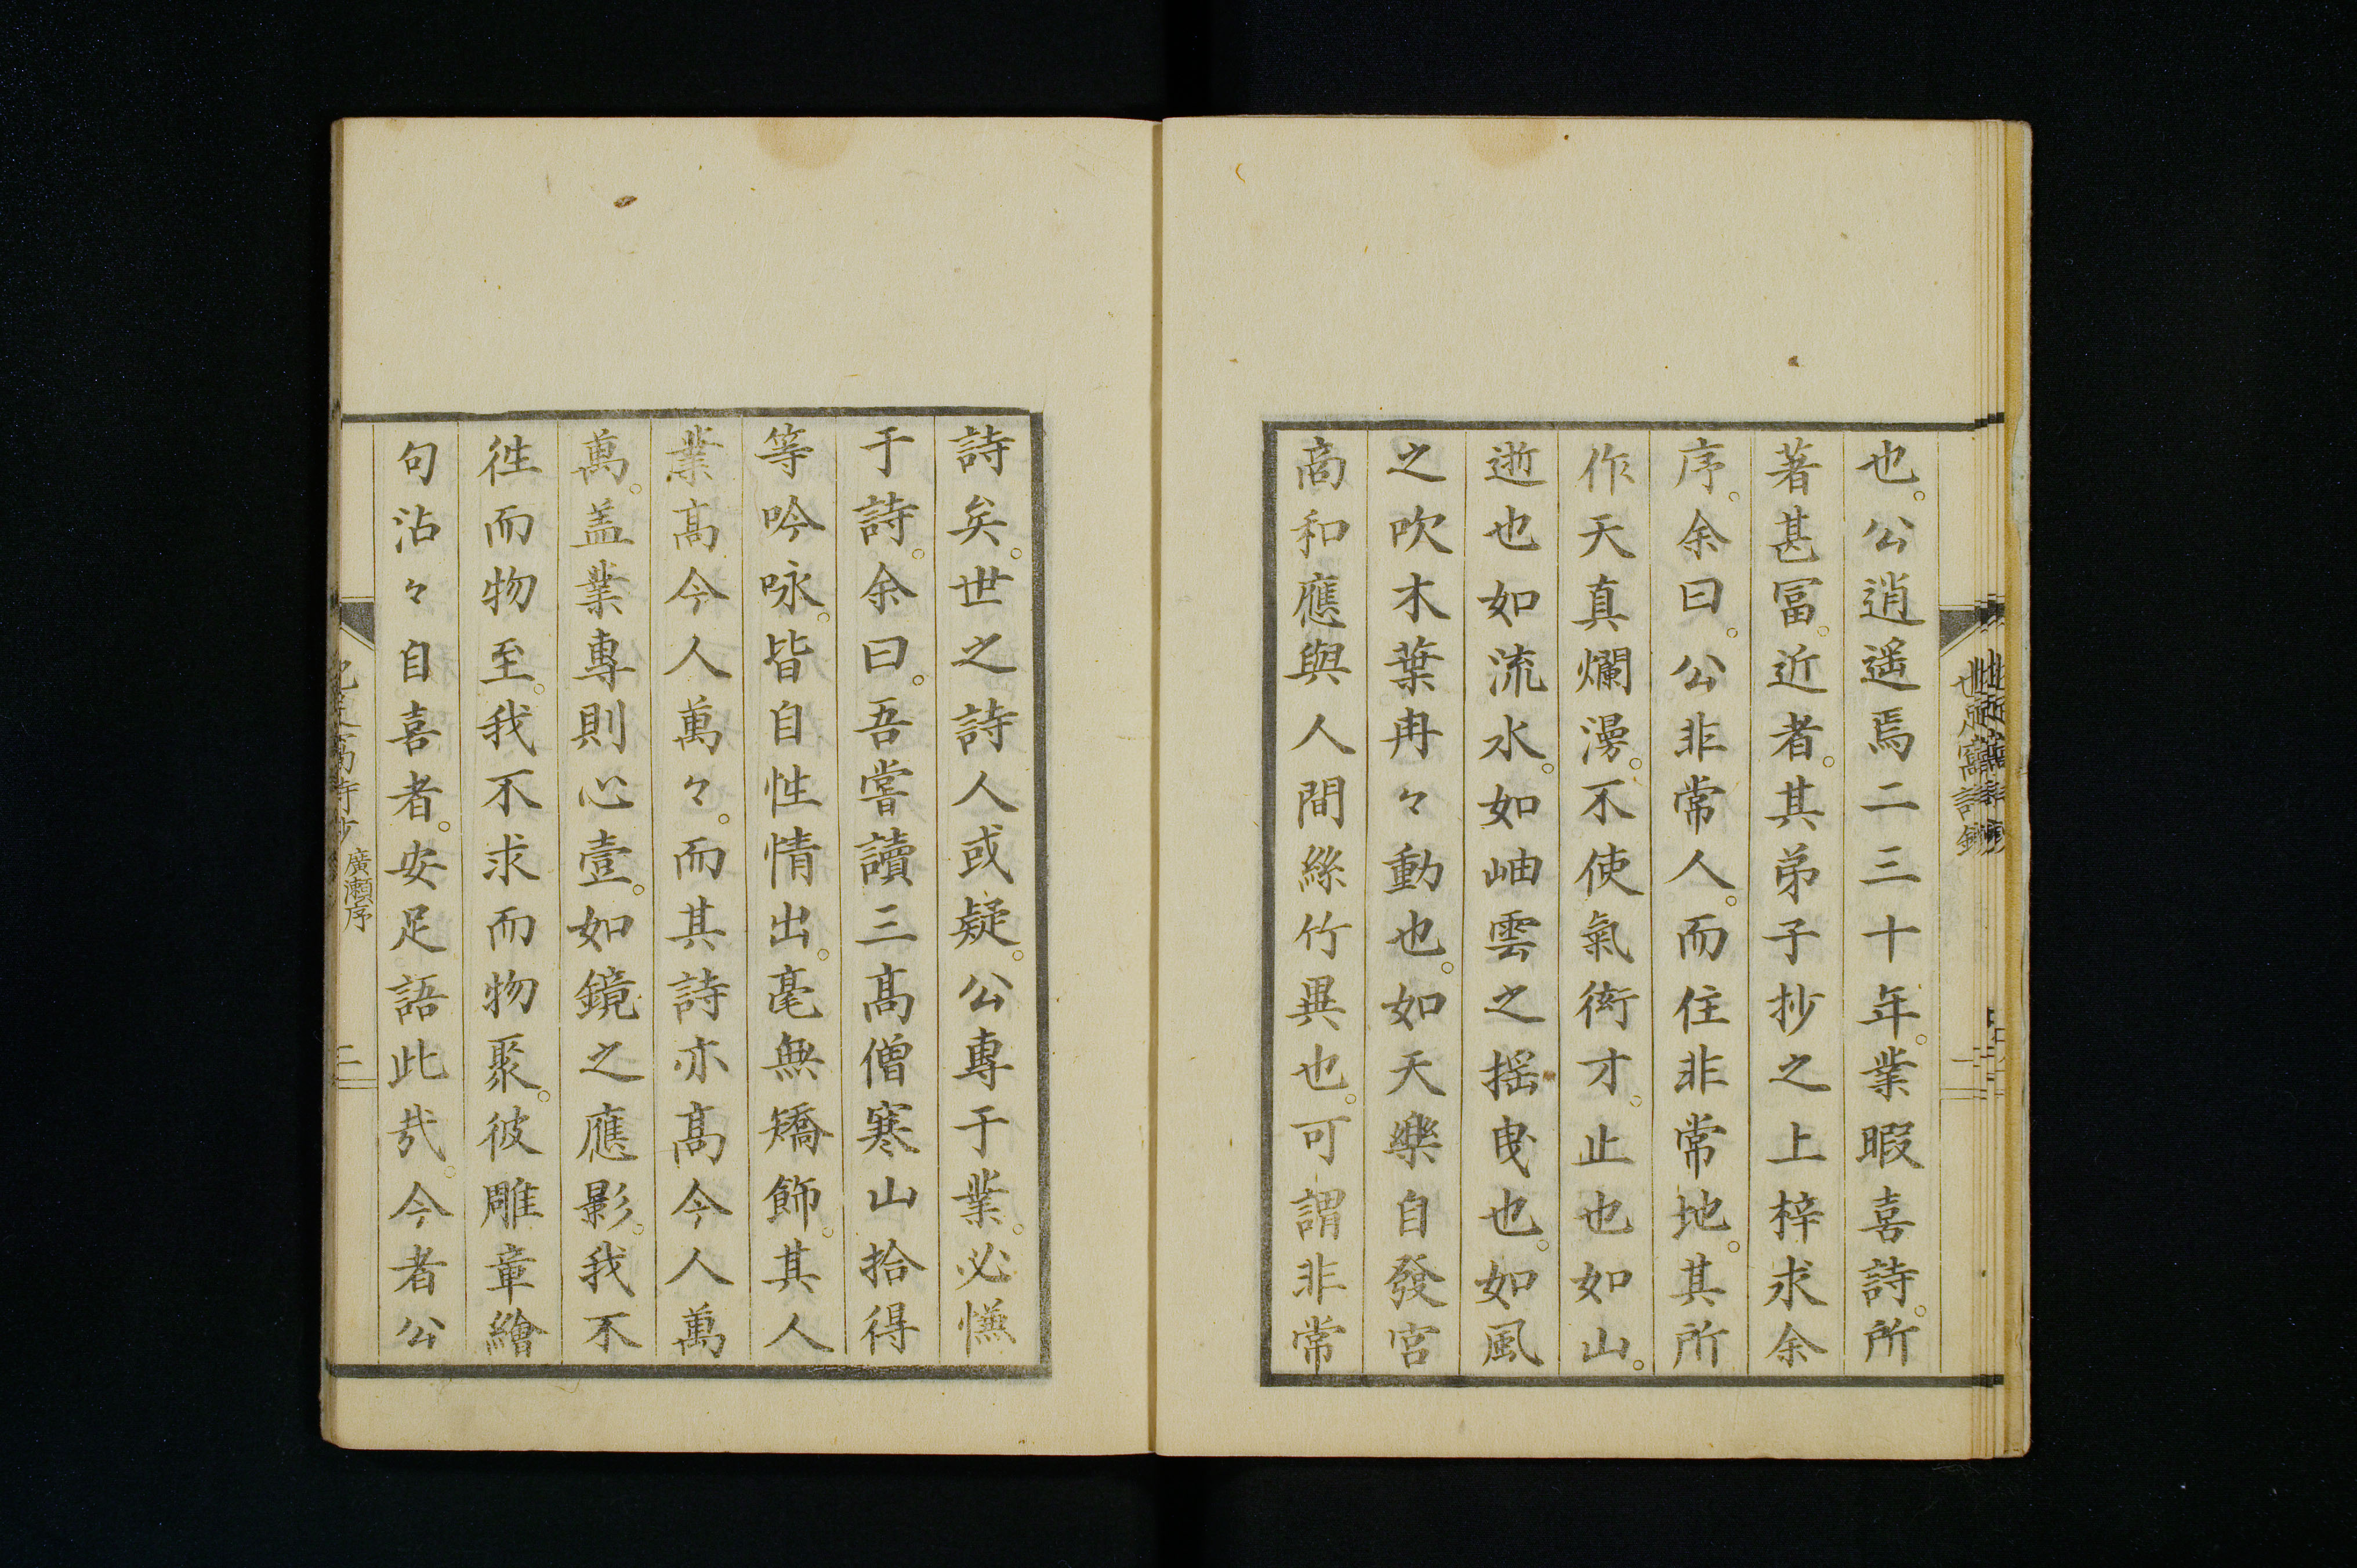 也。公逍遥焉二三十年。業暇喜詩。所
著甚冨。近者。其弟子抄之上梓求余
序。余曰。公非常人。而住非常地。其所
作天真爛漫。不使氣衒才。止也如山。
逝也如流水。如岫雲之揺曳也。如風
之吹木葉冉々動也。如天樂自發宮
商和應與人間絲竹異也。可謂非常
詩矣。世之詩人或疑。公專于業。必慊
于詩。余曰。吾嘗讀三髙僧寒山拾得
等吟咏。皆自性情出。毫無矯飾。其人
業髙今人萬々。而其詩亦髙今人萬
萬。盖業專則心壹。如鏡之應影。我不
徃而物至。我不求而物聚。彼雕章繪
句沾々自喜者。安足語此哉。今者公
廣瀬序
二